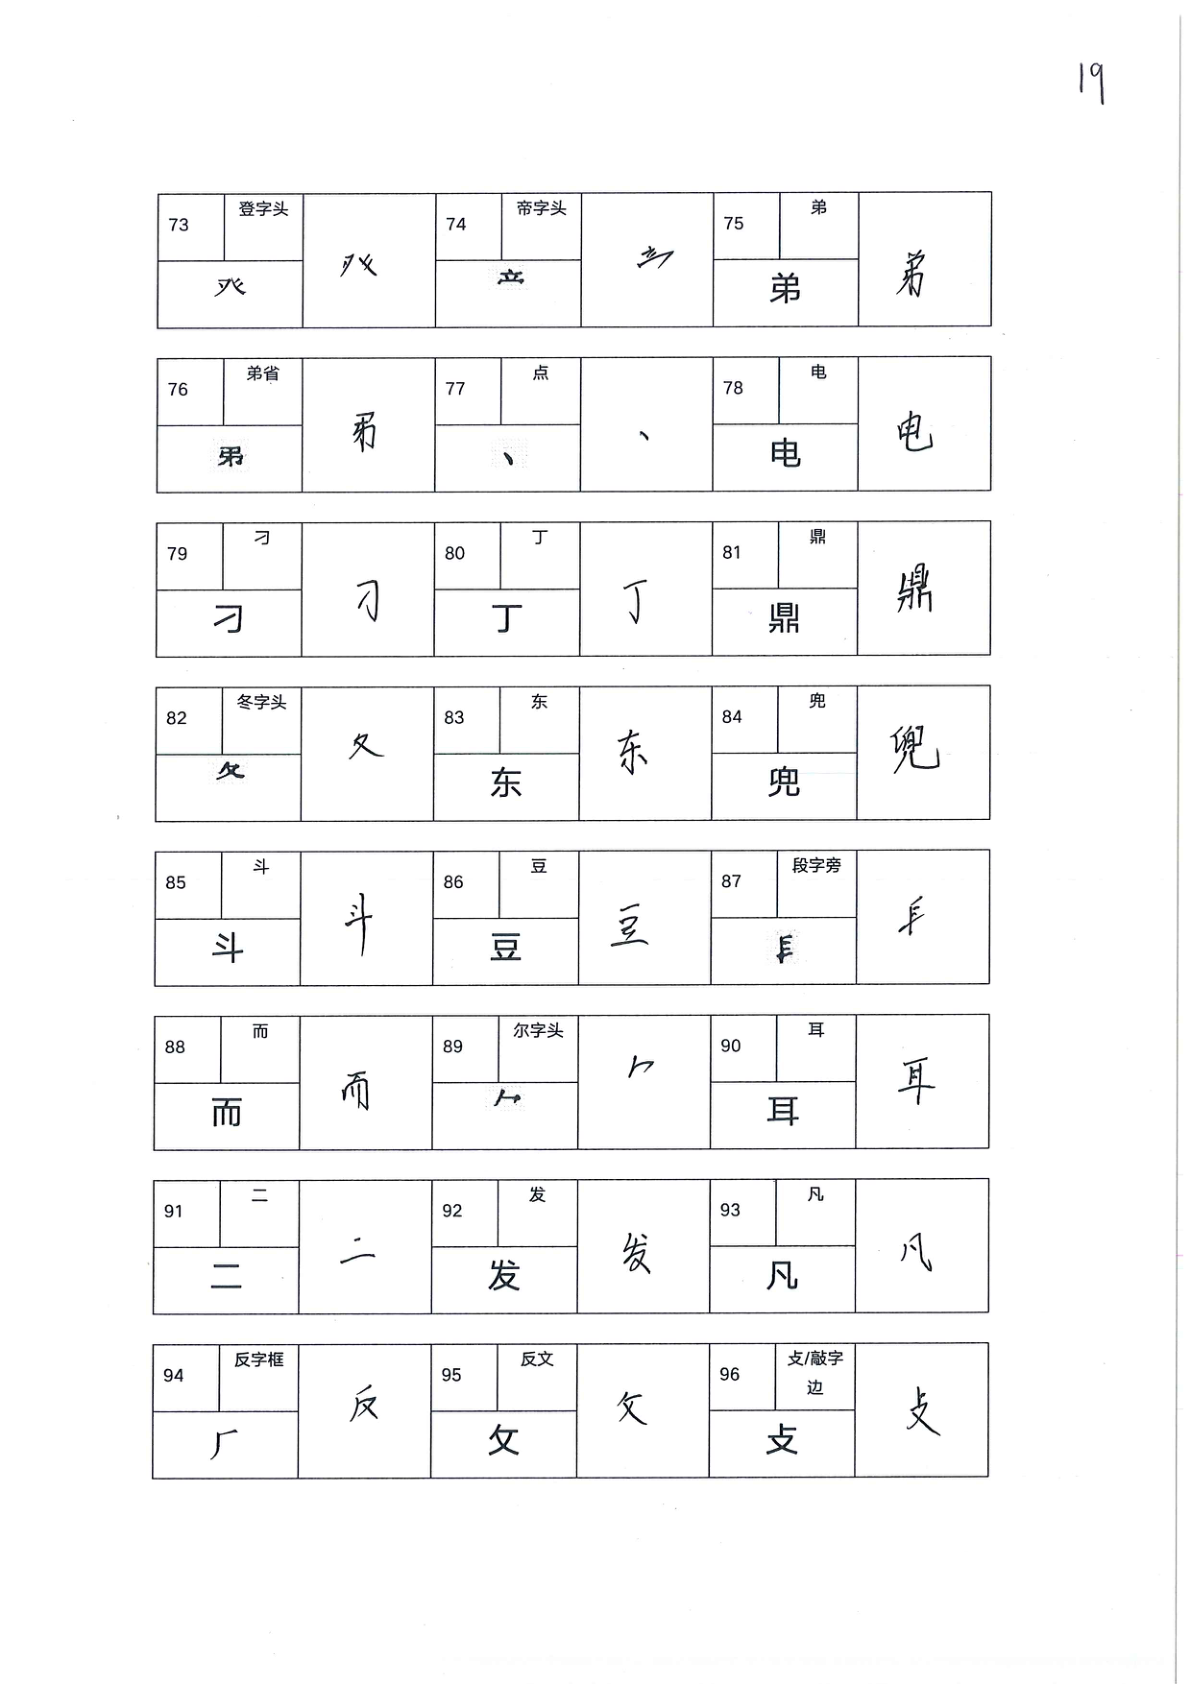 19
73 登字头 癶 癶 74 帝字头 75 弟 弟 弟
76 弟省 77 点 丶 丶 78 电 电 电
79 刁 刁 刁 80 丁 丁 丁 81 鼎 鼎 鼎
82 冬字头 夂 夂 83 东 东 东 84 兜 兜 兜
85 斗 斗 斗 86 豆 豆 豆 87 段字旁
88 而 而 而 89 尔字头 90 耳 耳 耳
91 二 二 二 92 发 发 发 93 凡 凡 凡
94 反字框 𠂆 反 95 反文 攵 攵 96 攴/敲字边 攴 攴